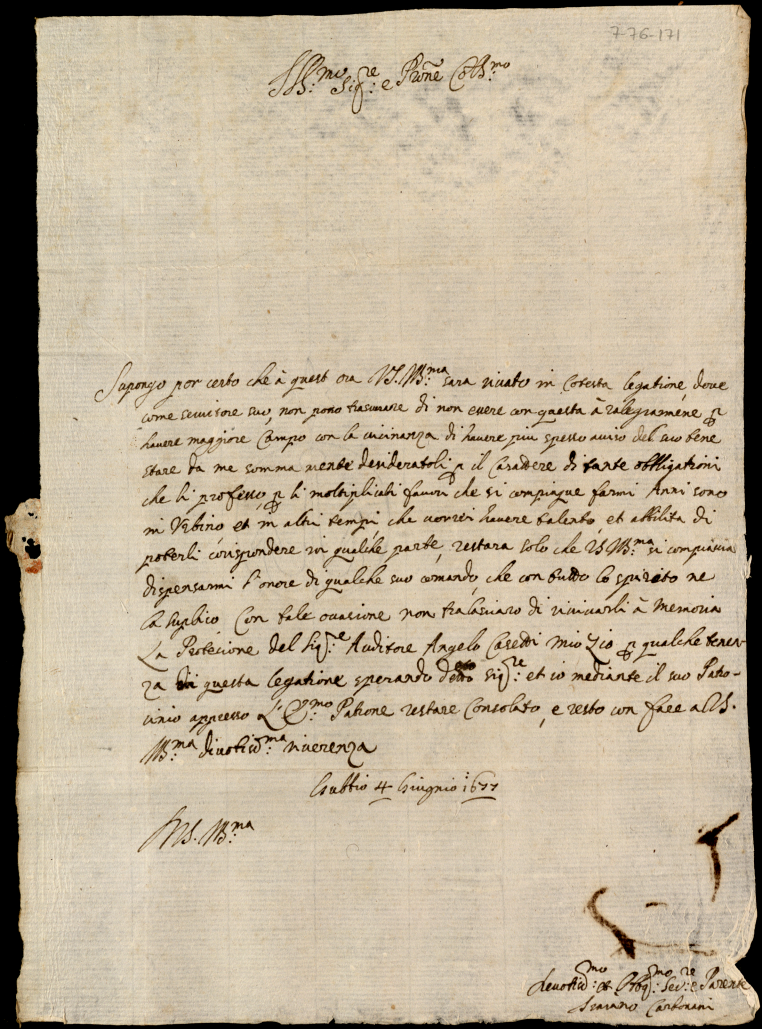 7-76-171
Ill:mo Sig:re e Pron̄e Coll:mo
Supongo por certo che à quest ora VS. Ill:ma sara rivato in Cotesta legatione, dove
come servitore suo, non posso trascurare di non essere con questa à ralegrarmene p
havere maggiore Campo con la vicinanza di havere piu spesso aviso del suo bene
stare da me somma mente desideratoli p il Carattere di tante obbligationi
che li professo, p li moltiplicati favori che si compiaque farmi Anni sono
in Urbino et in altri tempi che vorrei havere talento, et abbilita di
poterli corispondere in qualche parte, restara solo che VS Ill:ma si compiacia
dispensarmi l'onore di qualche suo comando, che con tutto lo spirito ne
la suplico, Con tale occasione non tralasciaro di rivivarli à Memoria
La Protecione del Sig:re Auditore Angelo Casetti mio Zio p qualche tenen-
za di questa legatione sperando detto Sig:re et io mediante il suo Patro-
cinio appresso L'E:mo Patrone restare Consolato, e resto con fare a VS.
Ill:ma divotiss:ma riverenza
Gubbio 4 Giugnio 1677
VS. Ill:ma
devotiss:mo et Obg:mo Ser:re e Parente
Carbonani